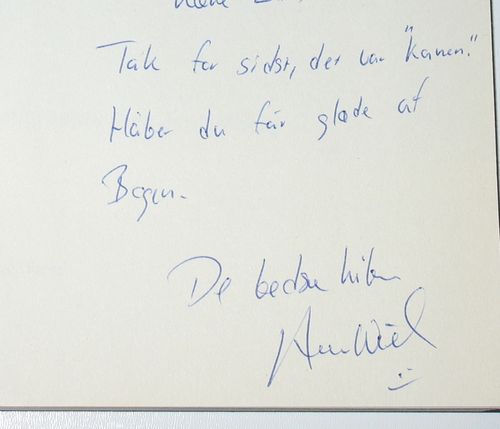 Tak for sidst, det var "kanon."
Håber du får glæde af
Bogen.
De bedste hilsn